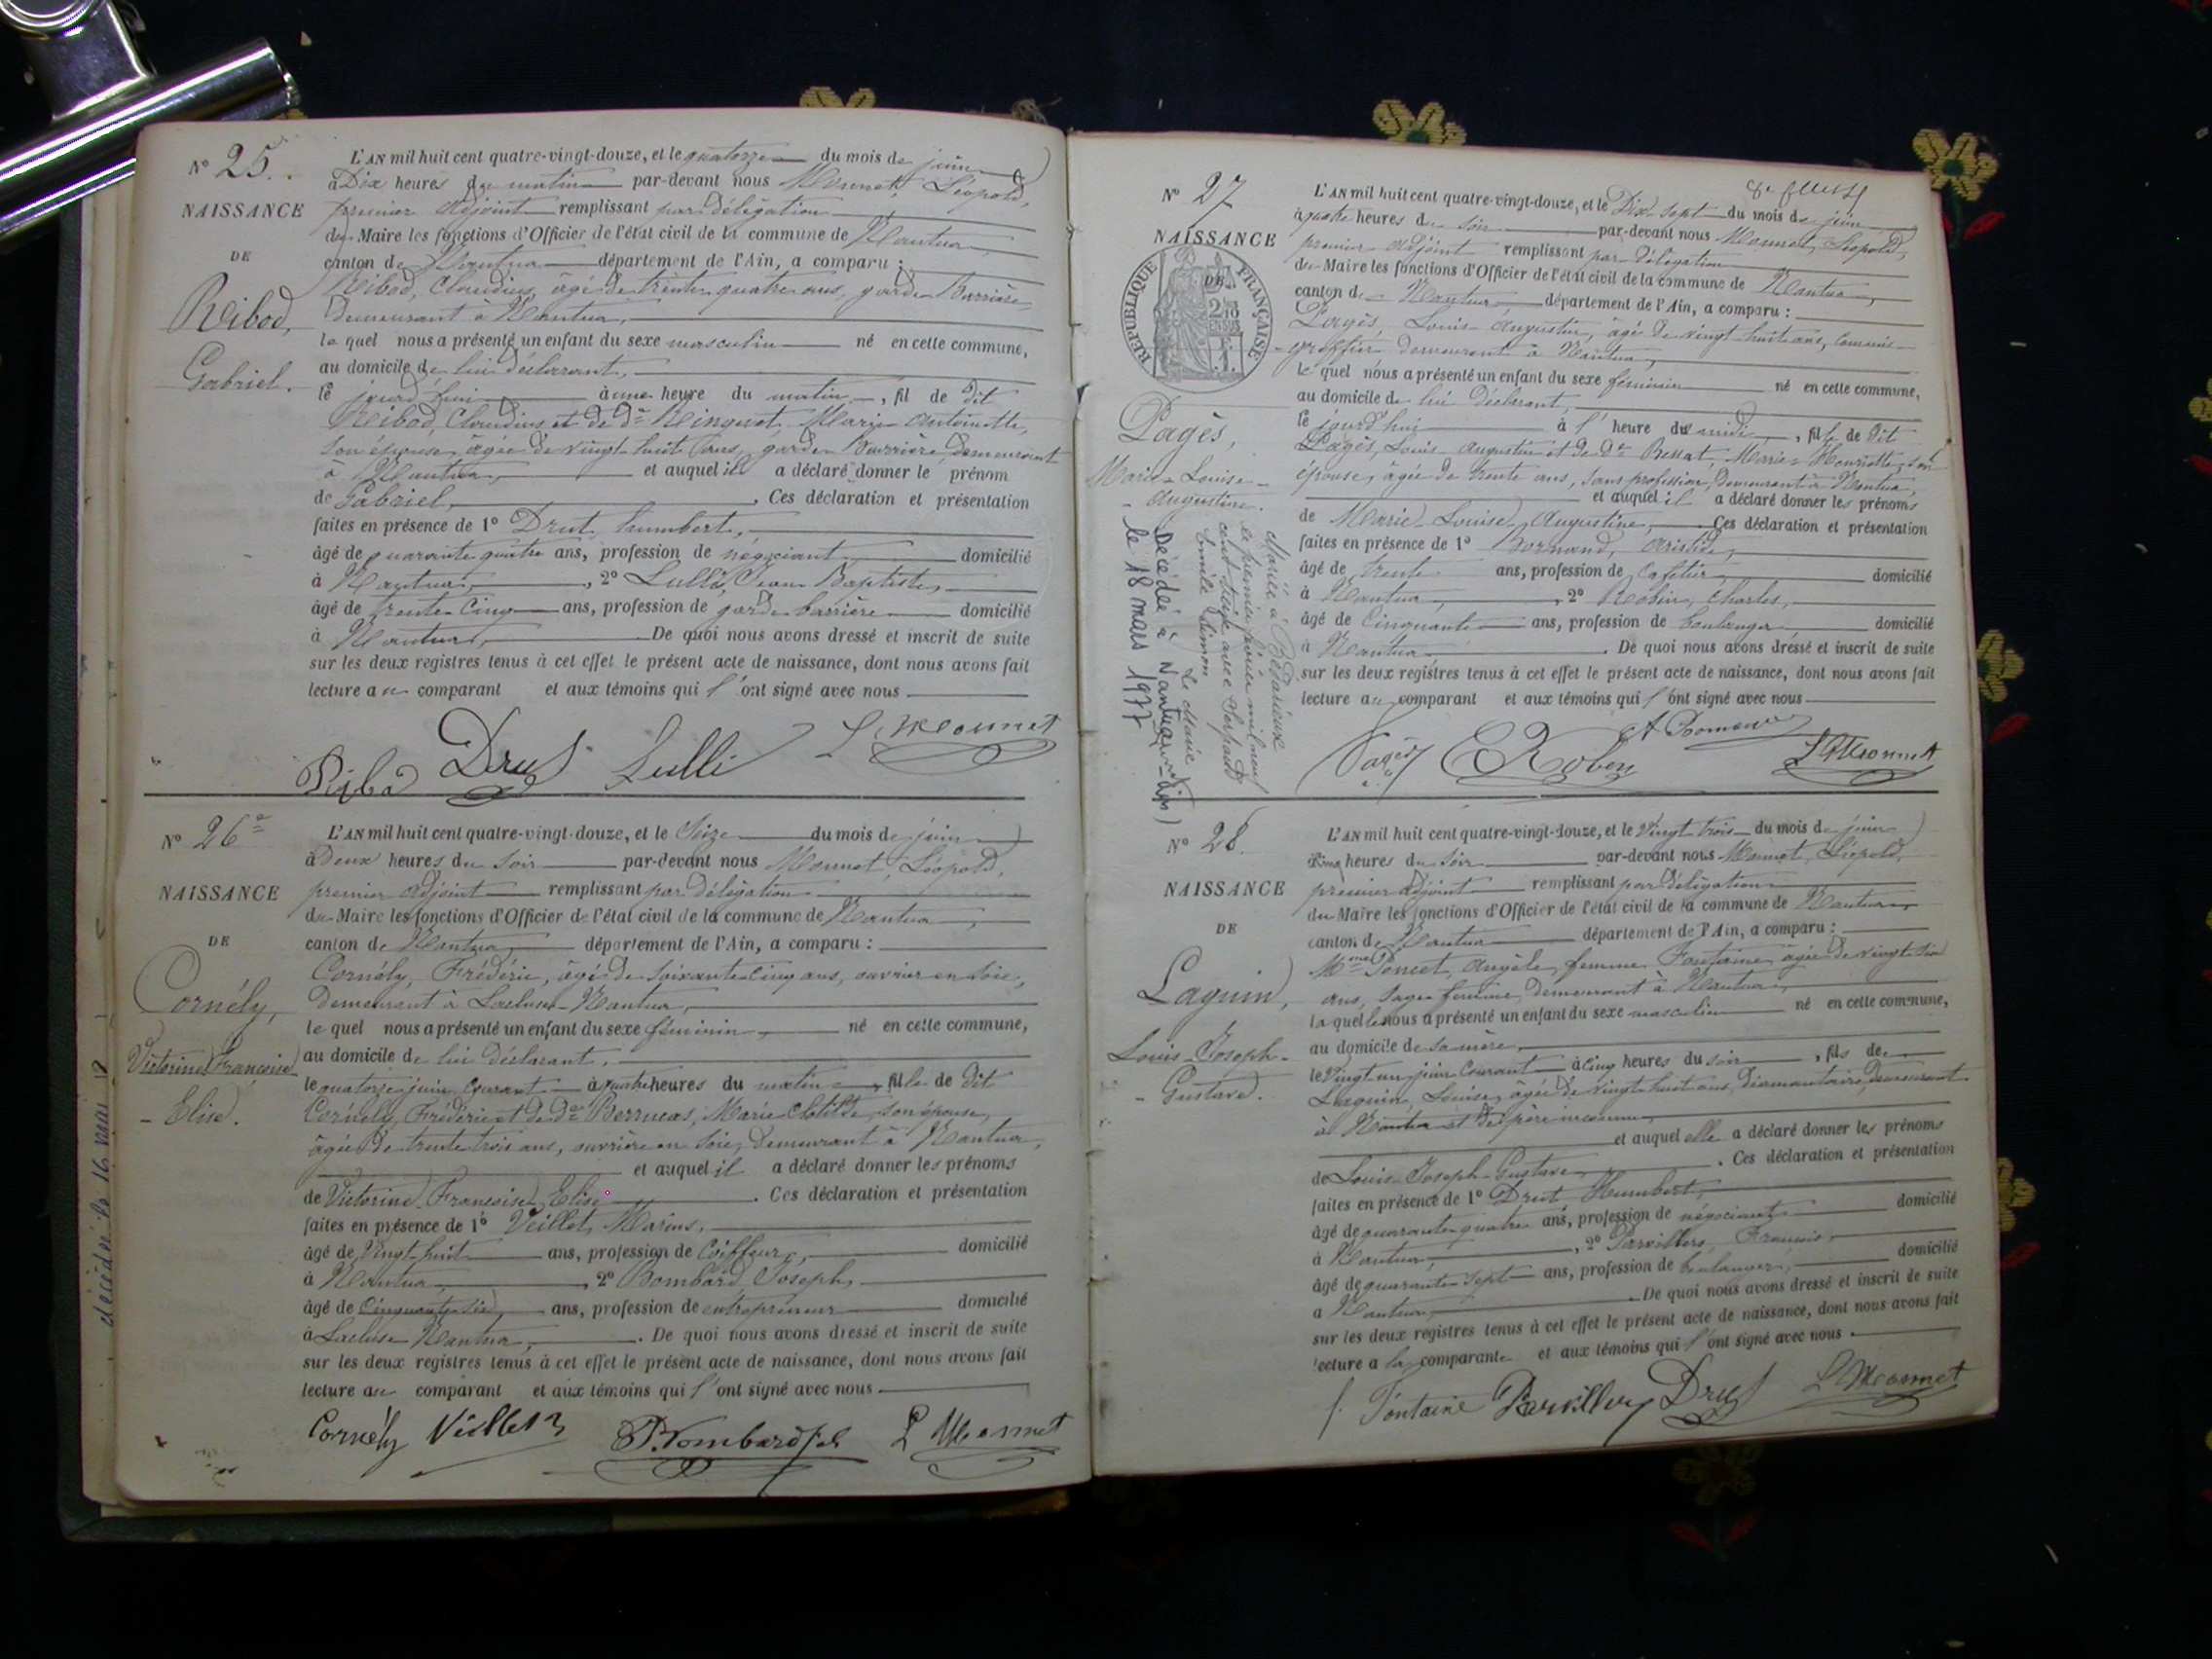 N° 25.
NAISSANCE
DE
Reibod,
Gabriel.
L'AN mil huit cent quatre-vingt-douze, et le quatorze du mois de juin
à Dix heures du matin par-devant nous Monnet, Léopold,
premier adjoint remplissant par délégation
du Maire les fonctions d'Officier de l'état civil de la commune de Nantua
canton de Nantua département de l'Ain, a comparu :
Reibod, Claudius, âgé de trente quatre ans, garde Barrière
demeurant à Nantua,
lequel nous a présenté un enfant du sexe masculin né en cette commune,
au domicile de lui déclarant,
le jourd'hui à une heure du matin, fils de dit
Reibod, Claudius et de de Marie Antoinette,
son épouse, âgée de vingt huit ans, garde Barrière, demeurant
à Nantua, et auquel il a déclaré donner le prénom
de Gabriel, . Ces déclaration et présentation
faites en présence de 1° Drut, humbert,
âgé de quarante quatre ans, profession de négociant domicilié
à Nantua, 2° Lulli, Jean Baptiste,
âgé de trente-Cinq ans, profession de garde barrière domicilié
à Nantua, . De quoi nous avons dressé et inscrit de suite
sur les deux registres tenus à cet effet le présent acte de naissance, dont nous avons fait
lecture au comparant et aux témoins qui l'ont signé avec nous
Drut Lulli L. Monnet
N° 26
NAISSANCE
DE
Cornély,
Victorine Françoise
- Elise.
décédée le 16 mai
L'AN mil huit cent quatre-vingt-douze, et le Seize du mois de juin
à deux heures du soir par-devant nous Monnet, Léopold,
premier adjoint remplissant par délégation
du Maire les fonctions d'Officier de l'état civil de la commune de Nantua,
canton de Nantua, département de l'Ain, a comparu :
Cornély, Frédéric, âgé de soixante-cinq ans, ouvrier en soie,
demeurant à Lacluse-Nantua,
lequel nous a présenté un enfant du sexe féminin, né en cette commune,
au domicile de lui déclarant,
le quatorze juin courant à quatre heures du matin, fille de dit
Cornély, Frédéric et de de Marie Clotilde, son épouse,
âgée de trente trois ans, ouvrière en soie, demeurant à Nantua,
et auquel il a déclaré donner les prénoms
de Victorine Françoise Elise . Ces déclaration et présentation
faites en présence de 1° Veillet, Marius,
âgé de vingt-huit ans, profession de Coiffeur, domicilié
à Nantua, 2° Bombard, Joseph,
âgé de Cinquante-six, ans, profession de entrepreneur domicilié
à Lacluse-Nantua, . De quoi nous avons dressé et inscrit de suite
sur les deux registres tenus à cet effet le présent acte de naissance, dont nous avons fait
lecture au comparant et aux témoins qui l'ont signé avec nous
Cornély Veillet Bombard L Monnet
N° 27
NAISSANCE
DE
RÉPUBLIQUE FRANÇAISE
Pagès,
Marie-Louise-
- Augustine.
Mariée à Bédarieux
le premier février mil neuf
cent seize avec
Emile Simon
Le Maire
Décédée à Nantua (Ain)
le 18 mars 1977
L'AN mil huit cent quatre-vingt-douze, et le Dix-Sept du mois de juin
à quatre heures du soir par-devant nous Monnet, Léopold,
premier adjoint remplissant par délégation
du Maire les fonctions d'Officier de l'état civil de la commune de Nantua,
canton de Nantua département de l'Ain, a comparu :
Pagès, Louis-Augustin, âgé de vingt huit ans, Commis-
greffier demeurant à Nantua,
lequel nous a présenté un enfant du sexe féminin né en cette commune,
au domicile de lui déclarant,
le jourd'hui à l' heure du midi, fille de dit
Pagès, Louis Augustin et de de Ressat, Marie-Henriette, son
épouse, âgée de trente ans, sans profession, demeurant à Nantua,
et auquel il a déclaré donner les prénoms
de Marie-Louise-Augustine, . Ces déclaration et présentation
faites en présence de 1° aristide,
âgé de trente ans, profession de Cafetier domicilié
à Nantua, 2° Robin, Charles,
âgé de Cinquante ans, profession de boulanger domicilié
à Nantua . De quoi nous avons dressé et inscrit de suite
sur les deux registres tenus à cet effet le présent acte de naissance, dont nous avons fait
lecture au comparant et aux témoins qui l'ont signé avec nous
Pagès Robin L Monnet
N° 28.
NAISSANCE
DE
Laguin,
Louis-Joseph-
- Gustave.
L'AN mil huit cent quatre-vingt-douze, et le Vingt-trois du mois de juin
à Cinq heures du soir par-devant nous Monnet, Léopold,
premier adjoint remplissant par délégation
du Maire les fonctions d'Officier de l'état civil de la commune de Nantua,
canton de Nantua département de l'Ain, a comparu :
Mme Poncet, Angèle, femme Fontaine, âgée de vingt-six
ans, sage-femme, demeurant à Nantua,
laquelle nous a présenté un enfant du sexe masculin né en cette commune,
au domicile de sa mère,
le vingt un juin courant à cinq heures du soir, fils de
Laguin, Louise, âgée de vingt-huit ans, diamantaire, demeurant
à Nantua et de père inconnu,
et auquel elle a déclaré donner les prénoms
de Louis-Joseph-Gustave . Ces déclaration et présentation
faites en présence de 1° Drut, Humbert,
âgé de quarante-quatre ans, profession de négociant domicilié
à Nantua, 2° Parvillers, François,
âgé de quarante-sept ans, profession de boulanger, domicilié
à Nantua . De quoi nous avons dressé et inscrit de suite
sur les deux registres tenus à cet effet le présent acte de naissance, dont nous avons fait
lecture à la comparante et aux témoins qui l'ont signé avec nous
f. Fontaine Parvillers Drut L Monnet